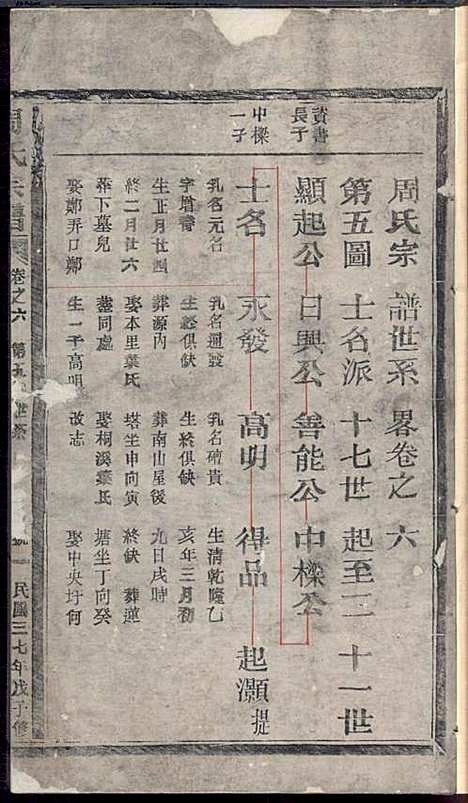 周氏宗譜世系畧卷之六
第五圖 士名派 十七世起至二十一世
賁書長子
顯起公 日興公 善能公 中樑公
中樑一子
士名 永發 高明 得品 起灝 提
乳名元名 乳名通發 乳名積貴 生清乾隆乙
字眉壽 生終俱缺 生終俱缺 亥年三月初
生正月廿四 葬源內 葬南山屋後 九日戌時
終二月廿六 娶本里葉氏 塔坐申向寅 終缺 葬蓮
葬下墓兒 葬同處 娶桐溪葉氏 塘坐丁向癸
娶鄭弄口鄭 生一子高明 改志 娶中央圩何
周氏宗譜 卷之六 第五 世系 一 民國三七年戊子修